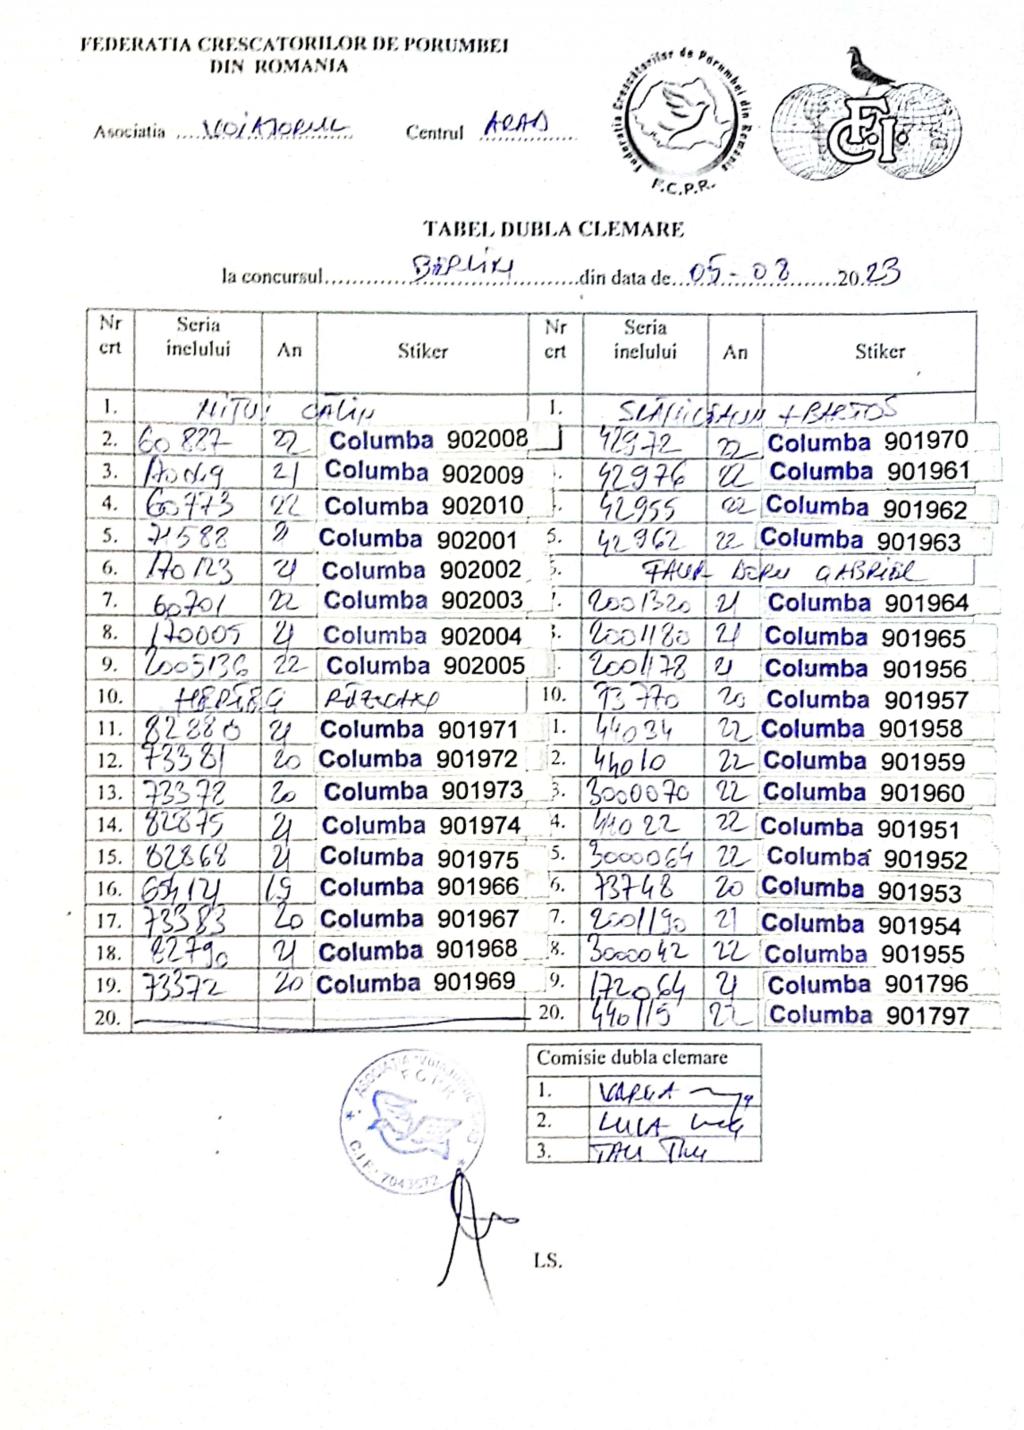 FEDERATIA CRESCATORILOR DE PORUMBEI
DIN ROMANIA
Asociatia ....VOIAJORUL Centrul ARAD
Federatia Crescătorilor de Porumbei din Romania
F.C.P.R.
FCI
TABEL DUBLA CLEMARE
la concursul BERLIN din data de 05-08 2023
Nr crt Seria inelului An Stiker Nr crt Seria inelului An Stiker
1. MITUI CALIN 1. + BARTOS
2. 60827 22 Columba 902008 42972 22 Columba 901970
3. 21 Columba 902009 42976 22 Columba 901961
4. 60773 22 Columba 902010 42955 22 Columba 901962
5. 71588 21 Columba 902001 5. 42962 22 Columba 901963
6. 170123 21 Columba 902002 FAUR DORU GABRIEL
7. 60701 22 Columba 902003 2001320 21 Columba 901964
8. 170005 21 Columba 902004 2001180 21 Columba 901965
9. 2005136 22 Columba 902005 2001178 21 Columba 901956
10. 10. 73770 20 Columba 901957
11. 82880 21 Columba 901971 1. 44034 22 Columba 901958
12. 73381 20 Columba 901972 2. 44010 22 Columba 901959
13. 73378 20 Columba 901973 3. 3000070 22 Columba 901960
14. 82875 21 Columba 901974 4. 44022 22 Columba 901951
15. 82868 21 Columba 901975 5. 3000064 22 Columba 901952
16. 19 Columba 901966 6. 73748 20 Columba 901953
17. 73383 20 Columba 901967 7. 2001190 21 Columba 901954
18. 82790 21 Columba 901968 8. 3000042 22 Columba 901955
19. 73372 20 Columba 901969 9. 172064 21 Columba 901796
20. 20. 440115 22 Columba 901797
Comisie dubla clemare
1. VARGA
2. LUCA
3. TAU
ASOCIATIA "VOIAJORUL" ARAD
F C P R
C.I.F. 7043572
LS.